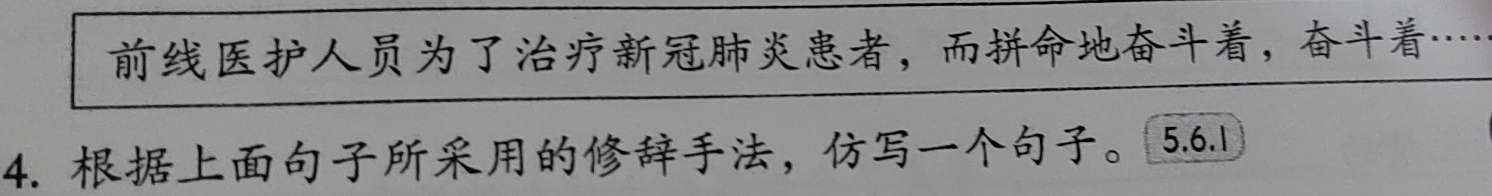 前线医护人员为了治疗新冠肺炎患者，而拼命地奋斗着，奋斗着……
4. 根据上面句子所采用的修辞手法，仿写一个句子。 5.6.1